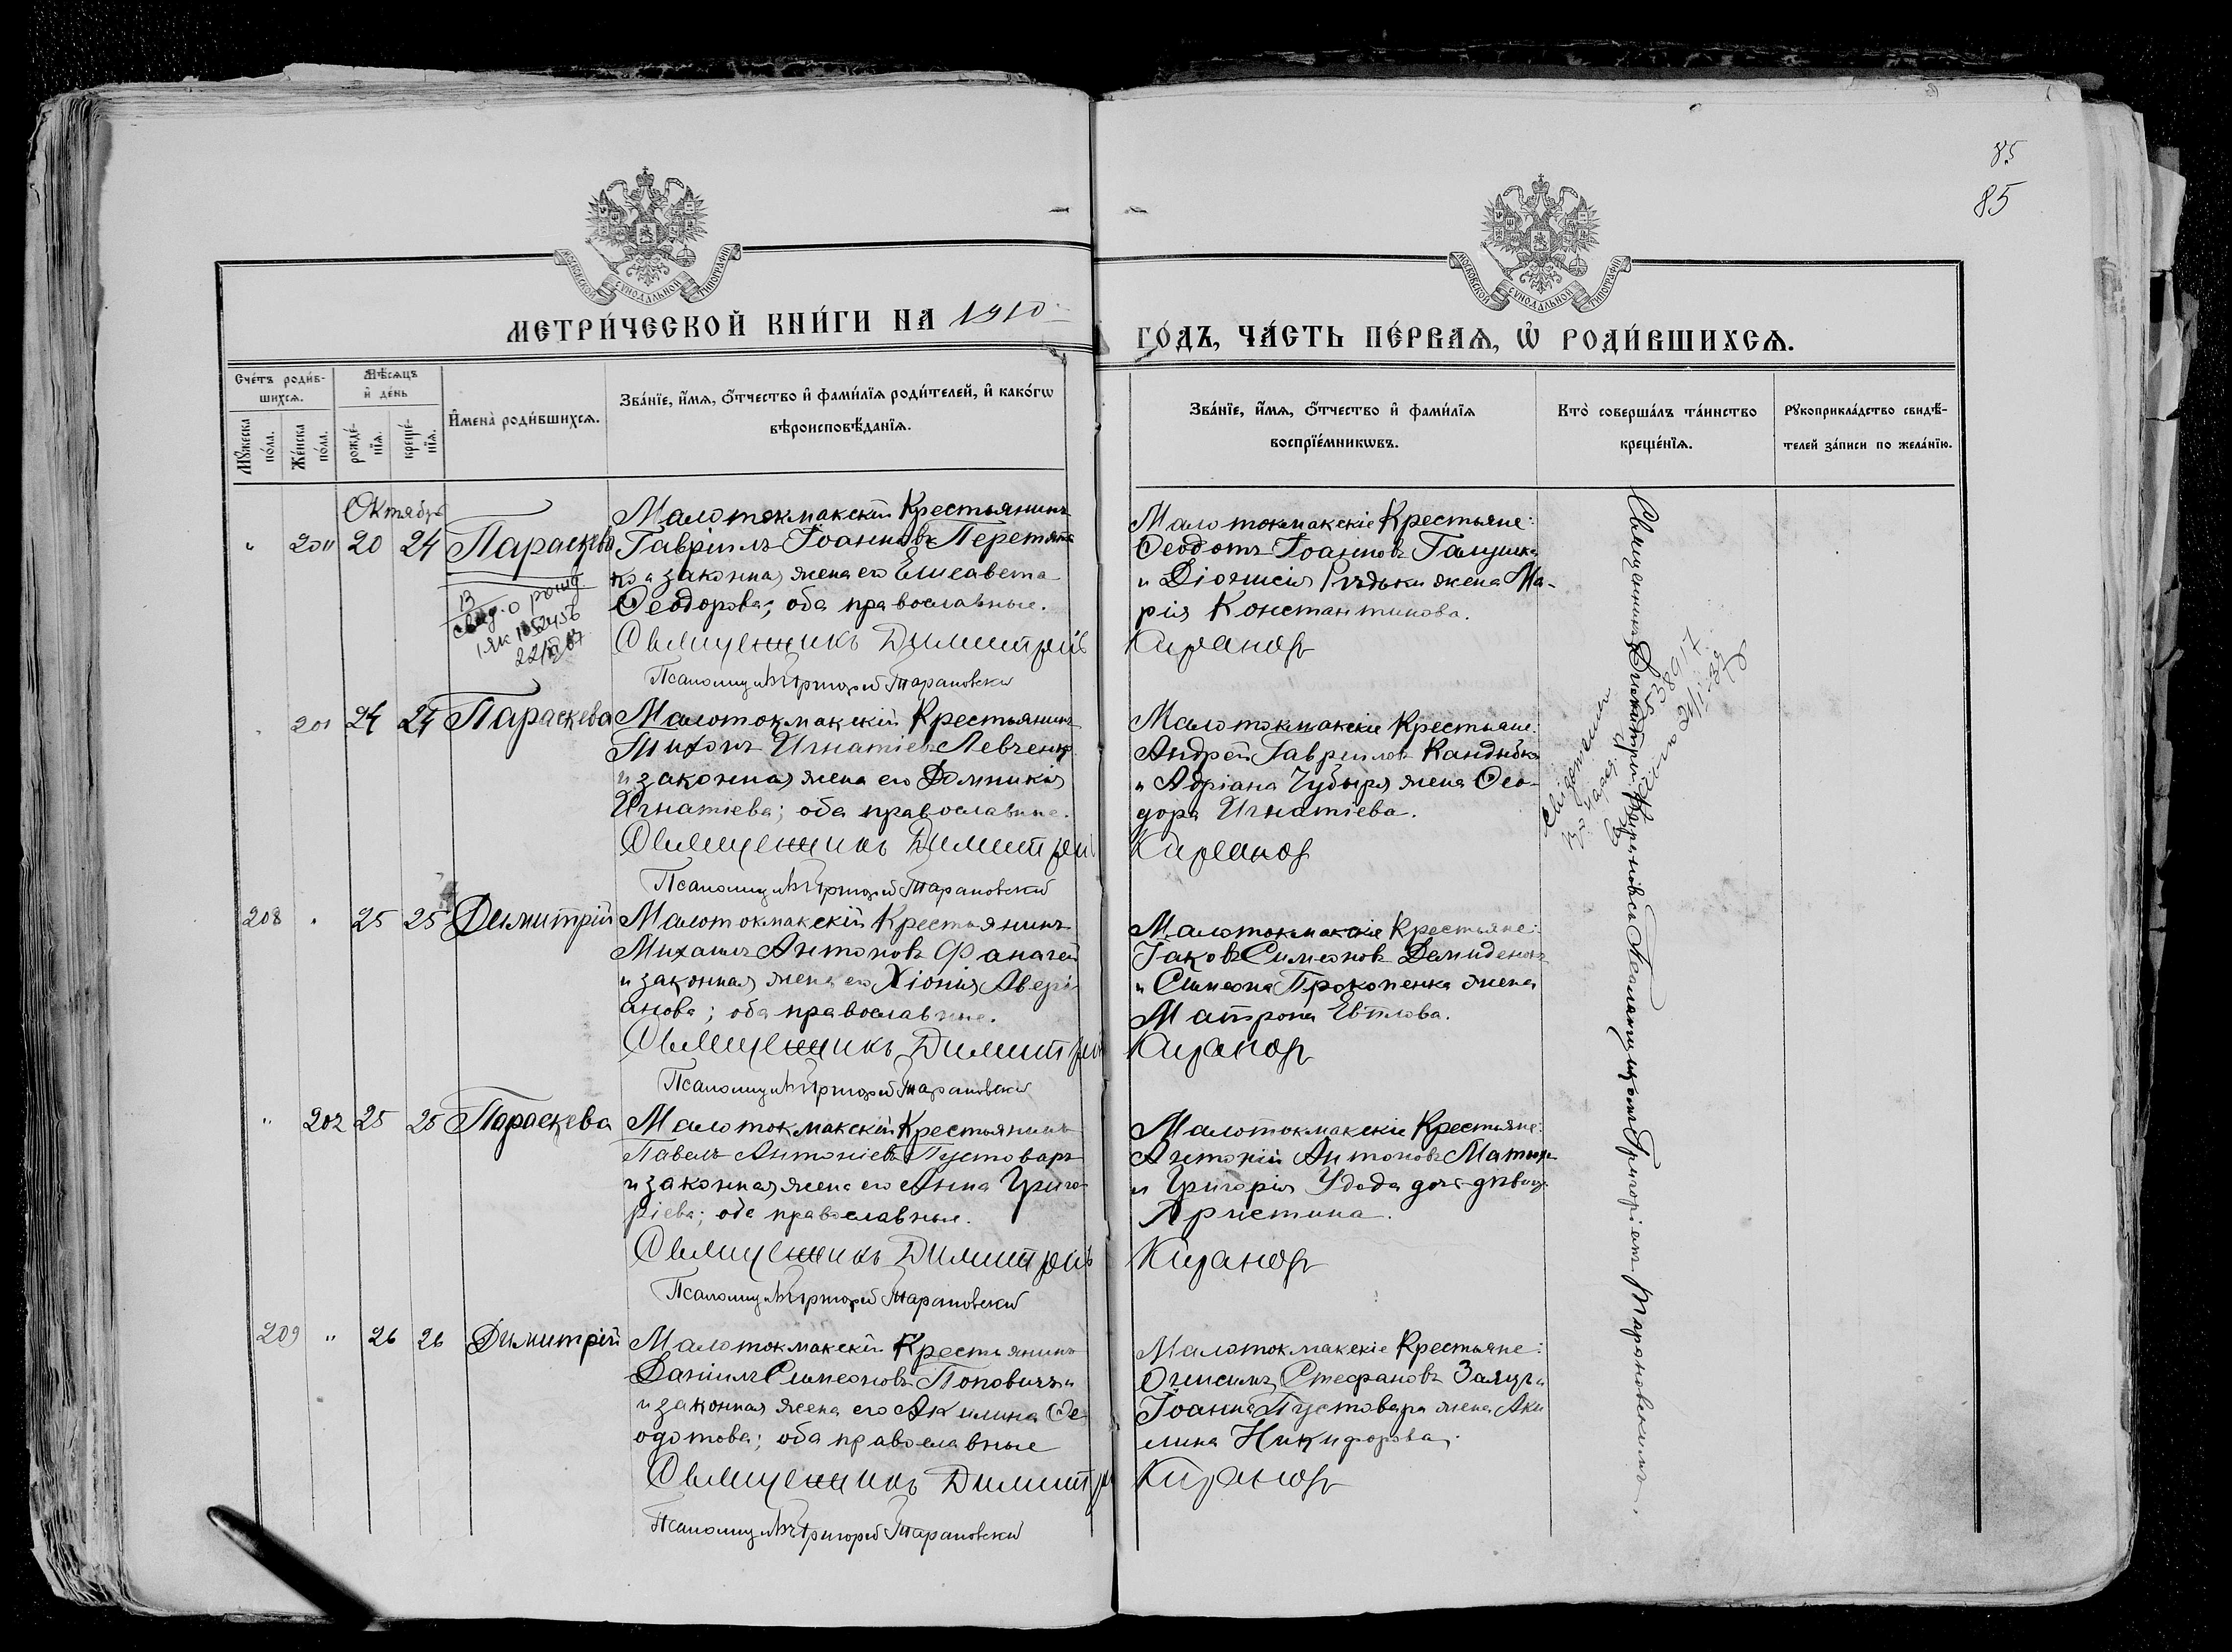 85
85
МОСКОВСКОЙ СѴНОДАЛЬНОЙ ТИПОГРАФІИ
МОСКОВСКОЙ СѴНОДАЛЬНОЙ ТИПОГРАФІИ
МЕТРИ́ЧЕСКОЙ КНИ́ГИ НА 1910 ГО́ДЪ, ЧА́СТЬ ПЕ́РВАѦ, Ѡ҆ РОДИ́ВШИХСѦ.
Сче́тъ роди́вшихсѧ.
Мꙋ́жеска по́ла.
Же́нска по́ла.
Мѣ́сѧцъ и҆ де́нь
рожде́нїѧ.
креще́нїѧ.
И҆мена̀ роди́вшихсѧ.
Зва́нїе, и҆́мѧ, ѻ҆́тчество и҆ фами́лїѧ роди́телей, и҆ како́гѡ
вѣроисповѣ́данїѧ.
Зва́нїе, и҆́мѧ, ѻ҆́тчество и҆ фами́лїѧ
воспрїе́мникѡвъ.
Кто̀ соверша́лъ та́инство
креще́нїѧ.
Рꙋкоприкла́дство свидѣ́-
телей за́писи по жела́нїю.
Октябр
" 200 20 24 Параскева
Малотокмакскій Крестьянинъ
Гавріилъ Іоанновъ Перетять
ко и законная жена его Елисавета
Ѳеодорова; оба православные.
Священникъ Димитрій Кирановъ
Псаломщикъ Григорій Тарановскій
Малотокмакскіе Крестьяне:
Ѳеодотъ Іоанновъ Галушка
и Діонисія Рѣдьки жена Ма-
рія Константинова.
свид. о рожд
22
201 24 24 Параскева
Малотокмакскій Крестьянинъ
Тихонъ Игнатіевъ Левченко
и законная жена его Домникія
Игнатіева; оба православные.
Священникъ Димитрій Кирановъ
Псаломщикъ Григорій Тарановскій
Малотокмакскіе Крестьяне:
Андрей Гавриловъ Кандыбка
и Адріана Чубыря жена Ѳео-
дора Игнатіева.
208 " 25 25 Димитрій
Малотокмакскій Крестьянинъ
Михаилъ Антоновъ Фаначей
и законная жена его Хіонія Авері-
анова; оба православные.
Священникъ Димитрій Кирановъ
Псаломщикъ Григорій Тарановскій
Малотокмакскіе Крестьяне:
Іаковъ Симеоновъ Демиденко
и Симеона Прокопенка жена
Матрона Евтлова.
" 202 25 25 Параскева
Малотокмакскій Крестьянинъ
Павелъ Антоніевъ Пустоваръ
и законная жена его Анна Григо-
ріева; оба православные.
Священникъ Димитрій Кирановъ
Псаломщикъ Григорій Тарановскій
Малотокмакскіе Крестьяне:
Антоній Антоновъ
и Григорія Удода дочь дѣвица
Христина.
209 " 26 26 Димитрій
Малотокмакскій Крестьянинъ
Даніилъ Симеоновъ Поповичъ
и законная жена его Акилина Ѳе-
одотова; оба православные
Священникъ Димитрій Кирановъ
Псаломщикъ Григорій Тарановскій
Малотокмакскіе Крестьяне:
Онисимъ Стефановъ
Іоанна Пустовара жена Аки
лина Никифорова.
Священникъ Димитрій Кирановъ съ Псаломщикомъ Григоріемъ Тарановскимъ.